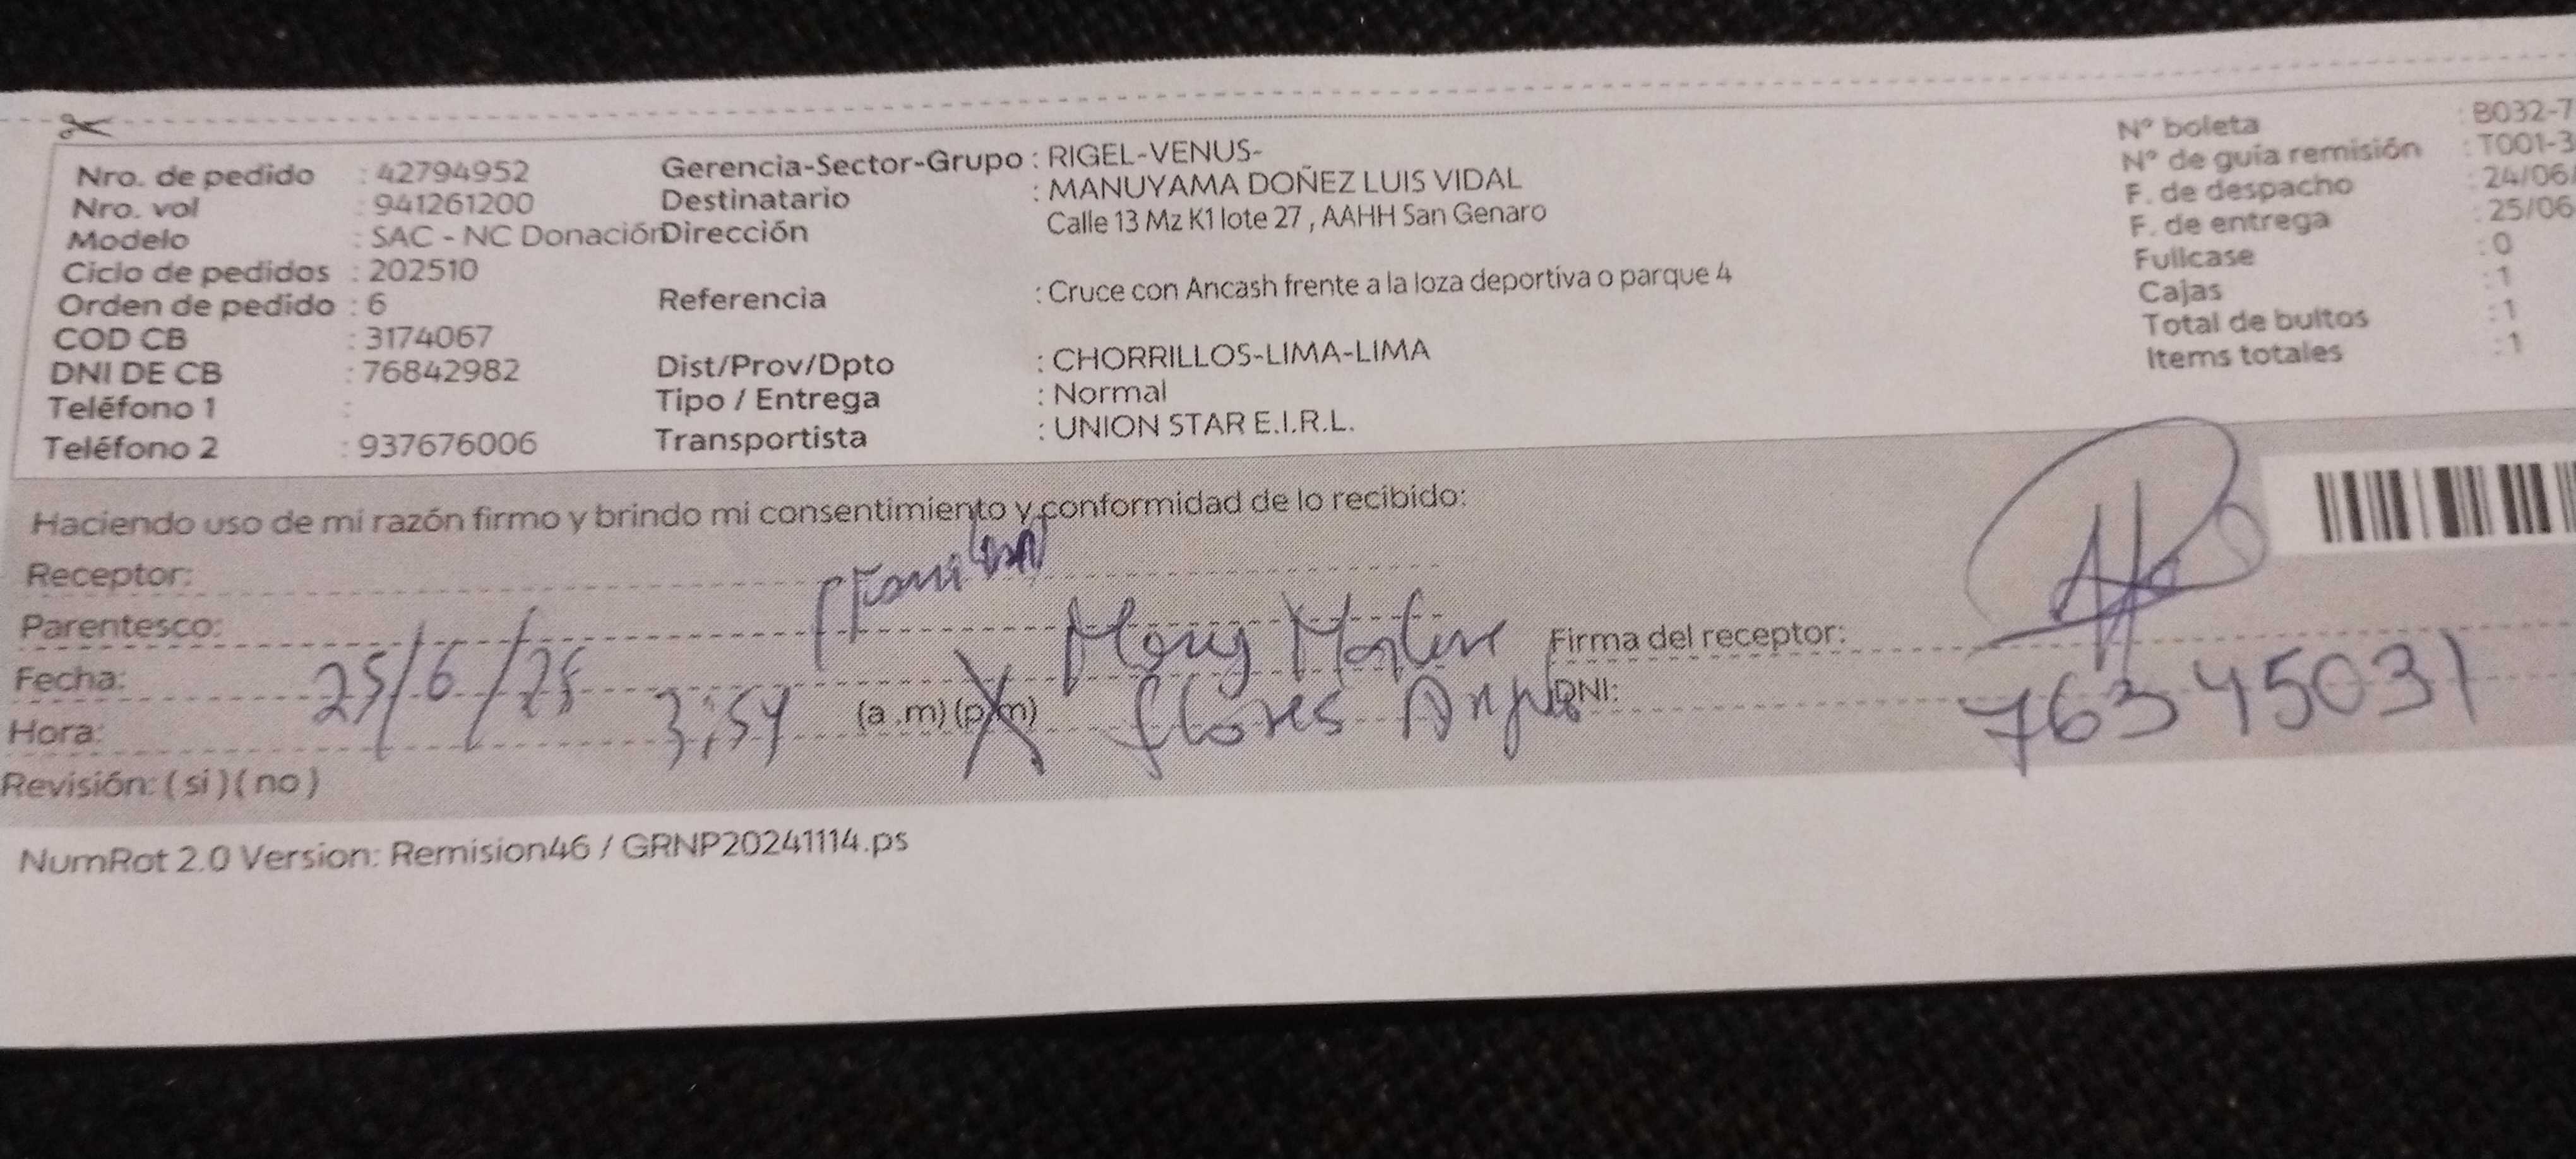 Nro. de pedido : 42794952
Nro. vol : 941261200
Modelo : SAC - NC Donación
Ciclo de pedidos : 202510
Orden de pedido : 6
COD CB : 3174067
DNI DE CB : 76842982
Teléfono 1 :
Teléfono 2 : 937676006
Gerencia-Sector-Grupo : RIGEL-VENUS-
Destinatario : MANUYAMA DOÑEZ LUIS VIDAL
Dirección Calle 13 Mz K1 lote 27 , AAHH San Genaro
Referencia : Cruce con Ancash frente a la loza deportiva o parque 4
Dist/Prov/Dpto : CHORRILLOS-LIMA-LIMA
Tipo / Entrega : Normal
Transportista : UNION STAR E.I.R.L.
N° boleta : B032-7
N° de guía remisión : T001-3
F. de despacho : 24/06/
F. de entrega : 25/06
Fullcase : 0
Cajas : 1
Total de bultos : 1
Items totales : 1
Haciendo uso de mi razón firmo y brindo mi consentimiento y conformidad de lo recibido:
Receptor:
Parentesco:
Fecha: 25/6/25
Hora: 3:54 (a .m) (p.m)
Flores
Firma del receptor:
DNI: 76345031
Revisión: ( si ) ( no )
NumRot 2.0 Version: Remision46 / GRNP20241114.ps